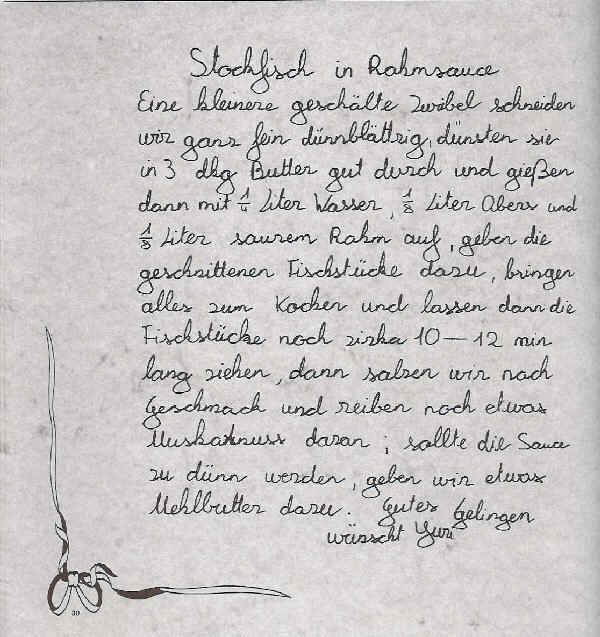 Stockfisch in Rahmsauce
Eine kleinere geschälte Zwibel schneiden
wir ganz fein dünnblättrig, dünsten sie
in 3 dkg Butter gut durch und gießen
dann mit 1/4 Liter Wasser, 1/8 Liter Obers und
1/8 Liter saurem Rahm auf, geben die
geschnittenen Fischstücke dazu, bringen
alles zum Kochen und lassen dann die
Fischstücke noch zirka 10 — 12 min
lang ziehen, dann salzen wir nach
Geschmack und reiben noch etwas
Muskatnuss daran; sollte die Sauce
zu dünn werden, geben wir etwas
Mehlbutter dazu. Gutes Gelingen
wünscht Yuri
30